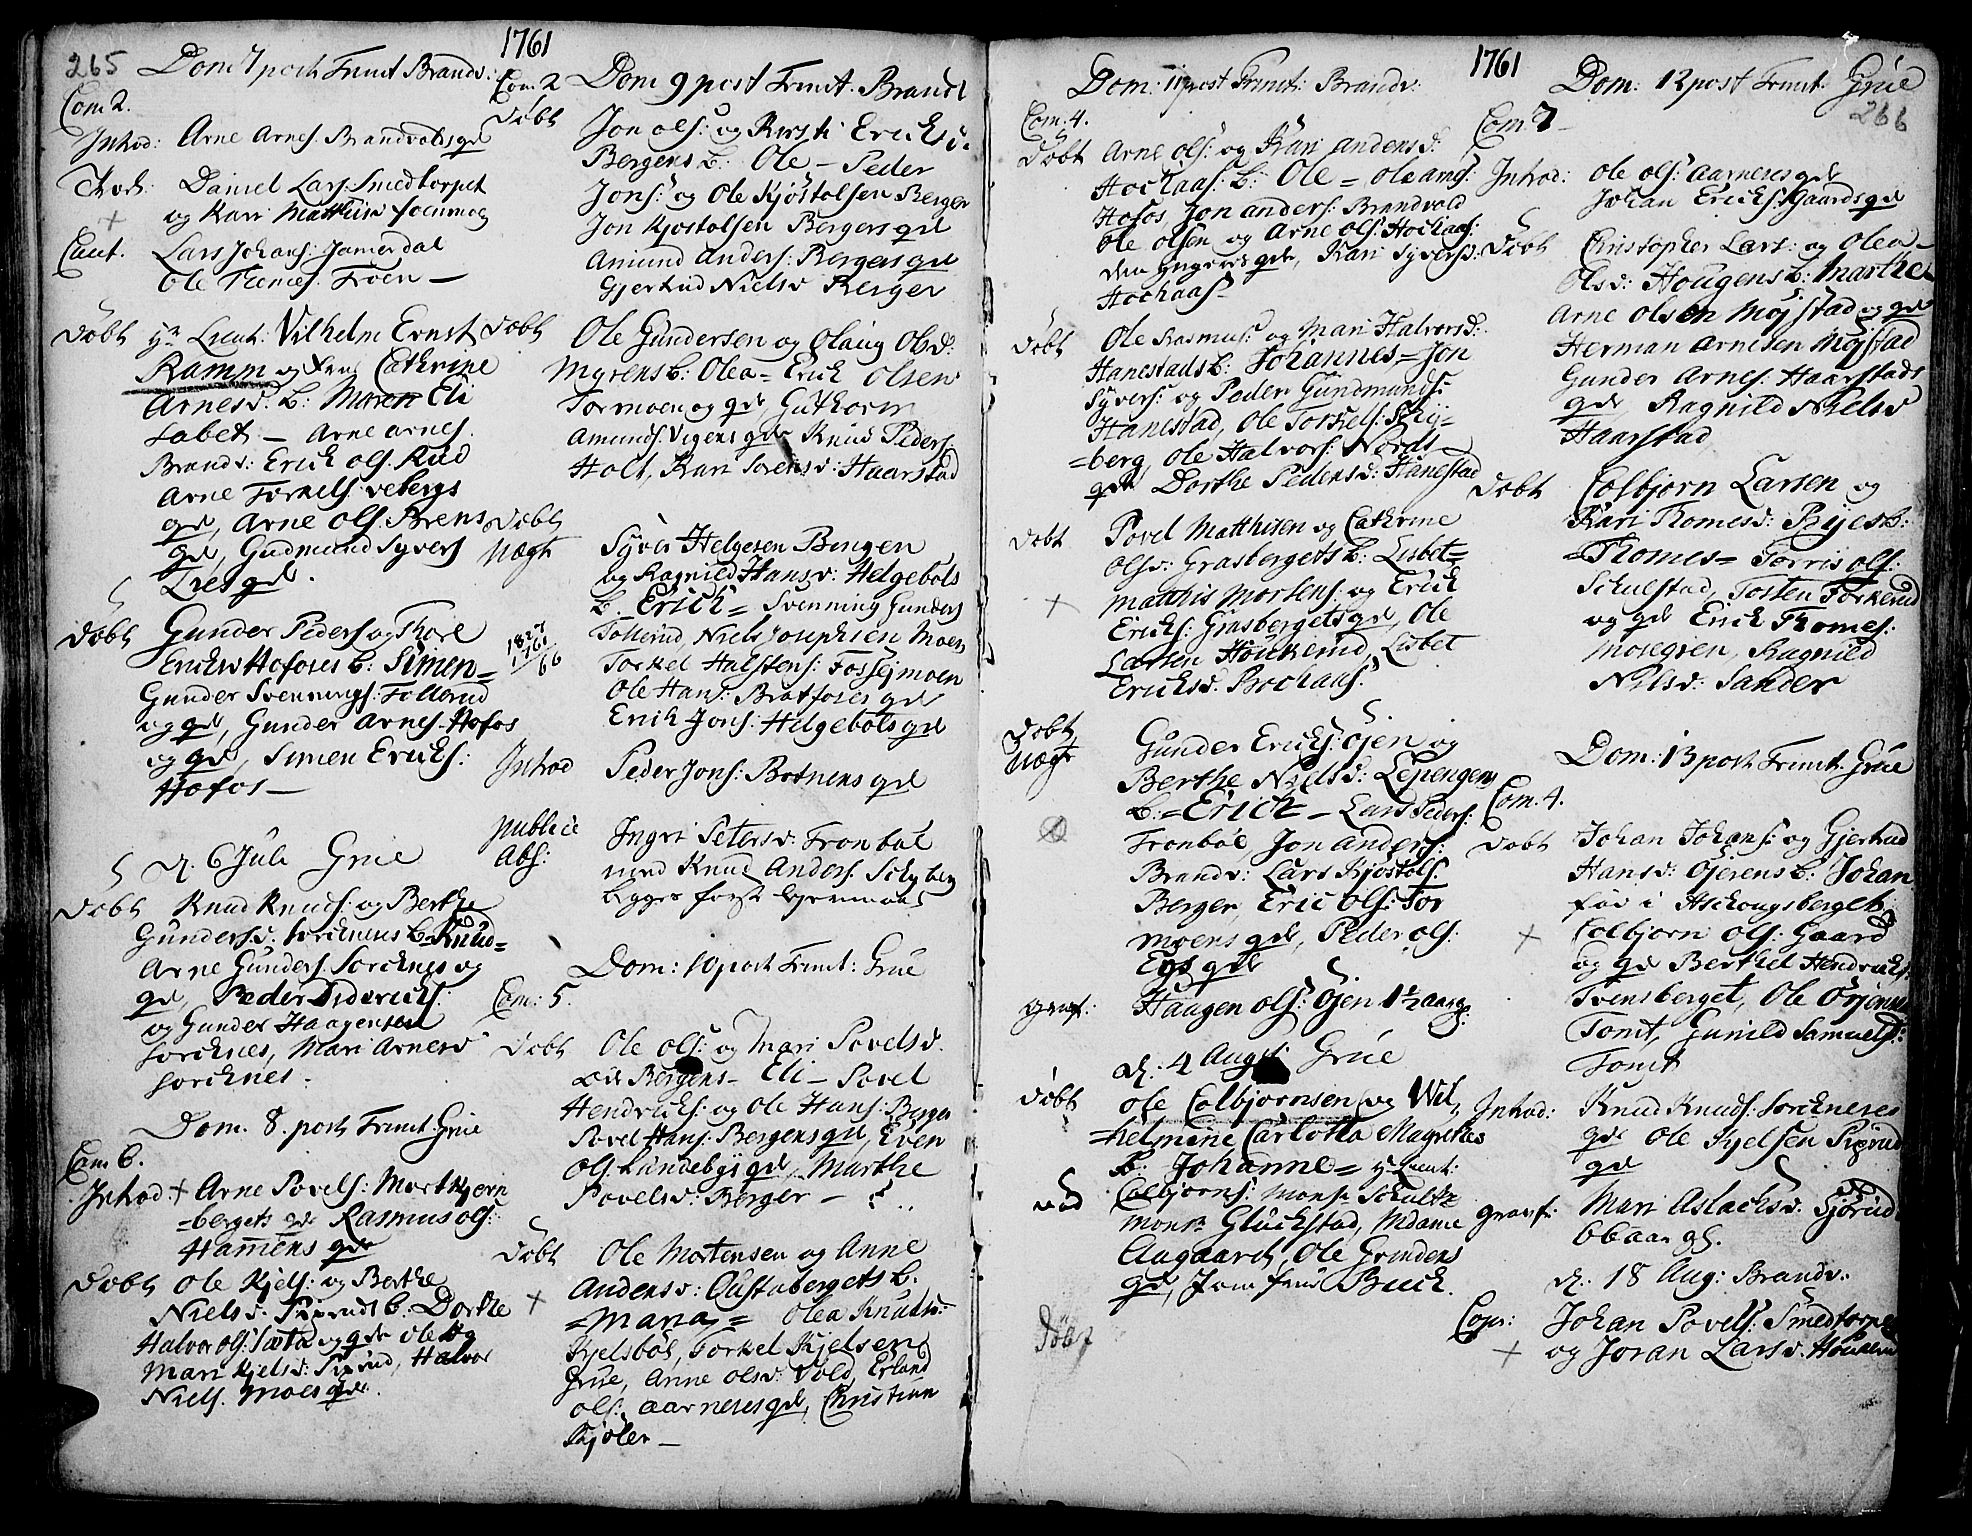 265
1761
Dom 7 post Trinit Brandv:
Com 2.
Introd: Arne Arnes: Brandvolds qd
Trod: Daniel Lars: Smedtorpet
og Kari Matthisd
Caut. Lars Johans: Jamerdal
Ole Thomes: Froen –
Døbt Hr Lieut: Vilhelm Ernst
Ramm og Frue Cathrine
Arnesd. b: Maren Eli
sabet – Arne Arnes.
Brandv: Erich Ols. Rud
Arne Torkels: Vebergs
qd, Arne Ols. Brens
qd, Gudmund Syvers
Lies qd.
Døbt Gunder Peders og Thore
Ericksd Hofoses b: Simen =
Gunder Svennings: Tollerud
og qd, Gunder Arnes. Hofos
og qd, Simen Ericks:
Hofos –
d. 6 Juli Grue
Døbt Knud Knuds: og Berthe
Gundersd. Sorcknes b. Knud =
Arne Gunders. Sorcknes og
qd, Peder Didericks:
og Gunder Haagensen
Sorcknes, Mari Arnesd
Sorcknes.
Dom. 8. post Trinit. Grue
Com 6.
Introd + Arne Povels: Mortkjern
= bergets qd Rasmus Ols:
Hammens qd
Døbt Ole Kjels: og Berthe
Nielsd. Piprud b. Dorthe
Halvor Ols: Sæta og qd Ole og
Mari Kjelsd: Piprud, Halvor
Niels. Moes qd.
Com 2 Dom 9 post Trinit. Brandv
Døbt Jon Ols: og Kirsti Ericksd.
Bergens b: Ole – Peder
Jons: og Ole Kjøstolsen Berger
Jon Kjostolsen Bergers qd
Amund Anders: Bergens qd
Gjertrud Nielsd Berger
Døbt Ole Gundersen og Olaug Olsd:
Myrens b: Olea = Erick Olsen
Tormoen og qd, Guthorm
Amunds. Vigens qd Knud Peders.
Holt, Kari Sorensd: Haarstad
Døbt
Uægt Syver Helgesen Bengen
og Ragnild Hansd: Helgebols
b. Erich = Svenning Gunders
Tollerud, Niels Josephsen Moen
Torkel Halstens: Fossejmoen
Ole Hans: Bratfoses qd
Erich Jons: Helgebols qd
1827
1761
66
Introd Peder Jons: Botnens qd
publice
Abs: Ingri Petersd: Fronbøl
med Knud Anders. Schyberg
begges første Lejermaal
Dom: 10 post Trinit: Grue
Com: 5.
Døbt Ole Ols: og Mari Povelsd.
Bergens – Eli – Povel
Hendricks: og Ole Hans: Berger
Povel Hans: Bergens qd, Even
Ols. Lundebyes qd, Marthe
Povelsd: Berger –
Døbt Ole Mortensen og Anne
Andersd: Oustabergets b.
+ = Maria = Olea Knudsd:
Kjelsbøl, Torkel Kjelsen
Grue, Anne Olsd: Vold, Erland
Ols: Aarneses qd, Christian
Kjøler –
1761
266
Dom: 11 post Trinit: Brandv:
Com: 4.
Døbt Arne Ols: og Kari Andersd:
Hochaas: b: Ole = Ole Arns:
Hofos, Jon Anders: Brandvold
Ole Olsen og Arne Ols: Hochaas:
den yngeres qd, Kari Syversd:
Hochaas –
Døbt Ole Rasmus: og Mari Halvorsd:
Hanestads b: Johannes = Jon
Syvers: og Peder Gundmunds:
Hanestad, Ole Torkels: Schy=
= berg, Ole Halvors: Nords
qd Dorthe Pedersd: Hanestad
Døbt Povel Matthisen og Cathrine
Olsd: Grasbergets b: Lisbet =
+ Matthis Mortens: og Erick
Ericks: Grasbergets qd, Ole
Larsen Houkerud, Lisbet
Ericksd. Bochaas:
Døbt
Uægt Gunder Ericks: Øjen og
Berthe Nielsd: Lejengens
b: = Erick – Lars Peders:
Fronbøl, Jon Anders:
Brandv: Lars Kjøstols:
Berger, Eric Ols: Tor
moens qd, Peder Ols:
qd
Gravf: Haagen Ols: Øjen 1½ aar g:
d: 4 Aug: Grue
Døbt Ole Colbjørnsen og Wil,
= helmine Carlotta Magrethes
b: Johanne = Hr Lieut:
Colbjørns: Mons: Schultz
Monsr Glückstad, Mdame
Aagaard, Ole Grindens
qd, Jomfrue Buck.
Døbt
Dom: 12 post Trinit: Grue
Com: 7
Introd: Ole Ols: Aarneses qd
Johan Ericks: Gaards qd
Døbt Christopher Lars: og Olea
Olsd: Hougens b: Marthe
Arne Olsen Møjstad og qd
Herman Arnesen Møjstad
Gunder Arnes: Haarstads
qd, Ragnild Nielsd
Haarstad,
Døbt Colbjorn Larsen og
Kari Thomesd: Ryes b:
= Thomes = Torris Ols:
Schulstad, Tosten Torkerud
og qd Erick Thomes:
Mosegren, Ragnild
Nielsd: Sander
Dom: 13 post Trinit. Grue
Com: 4.
Døbt Johan Johans: og Gjertrud
Hansd: Øjerens b: Johan
fød i Aschougsberget.
+ Colbjorn Ols: Gaard
og qd Berthel Hendricks:
Svensberget, Ole Ørjens
Tomt, Gunild Samuelsd:
Tomt
Introd: Knud Knuds: Sorckneses
qd Ole Kjelsen Piprud
qd
Gravf: Mari Aslachsd. Sjørud
66 aar gl.
d: 18 Aug: Brandv:
Cop: Johan Povels: Smedtorpet
+ og Joran Larsd. Houkerud